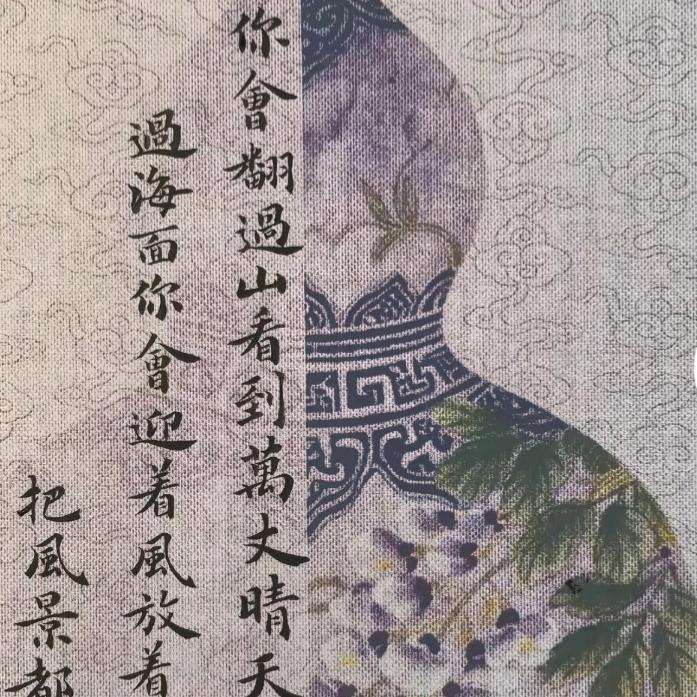 你會翻過山看到萬丈晴天
過海面你會迎着風放着
把風景都